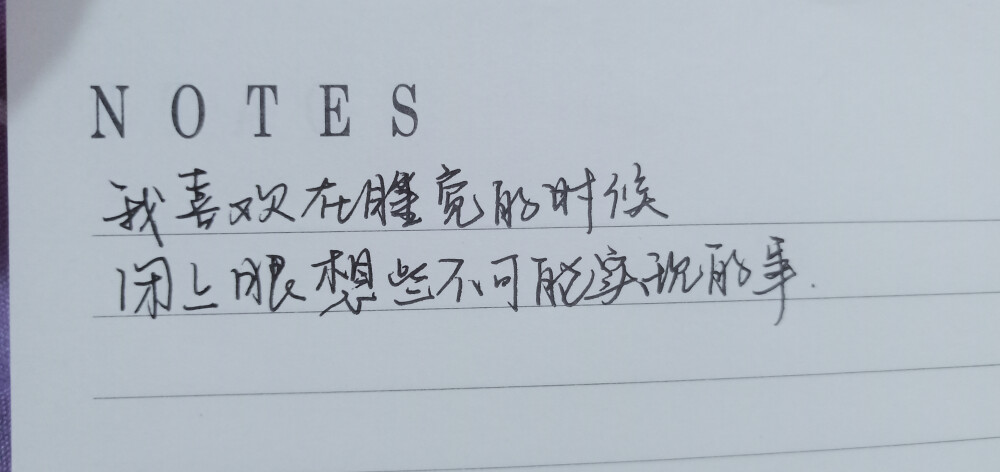 NOTES
我喜欢在睡觉的时候
闭上眼想些不可能实现的事.